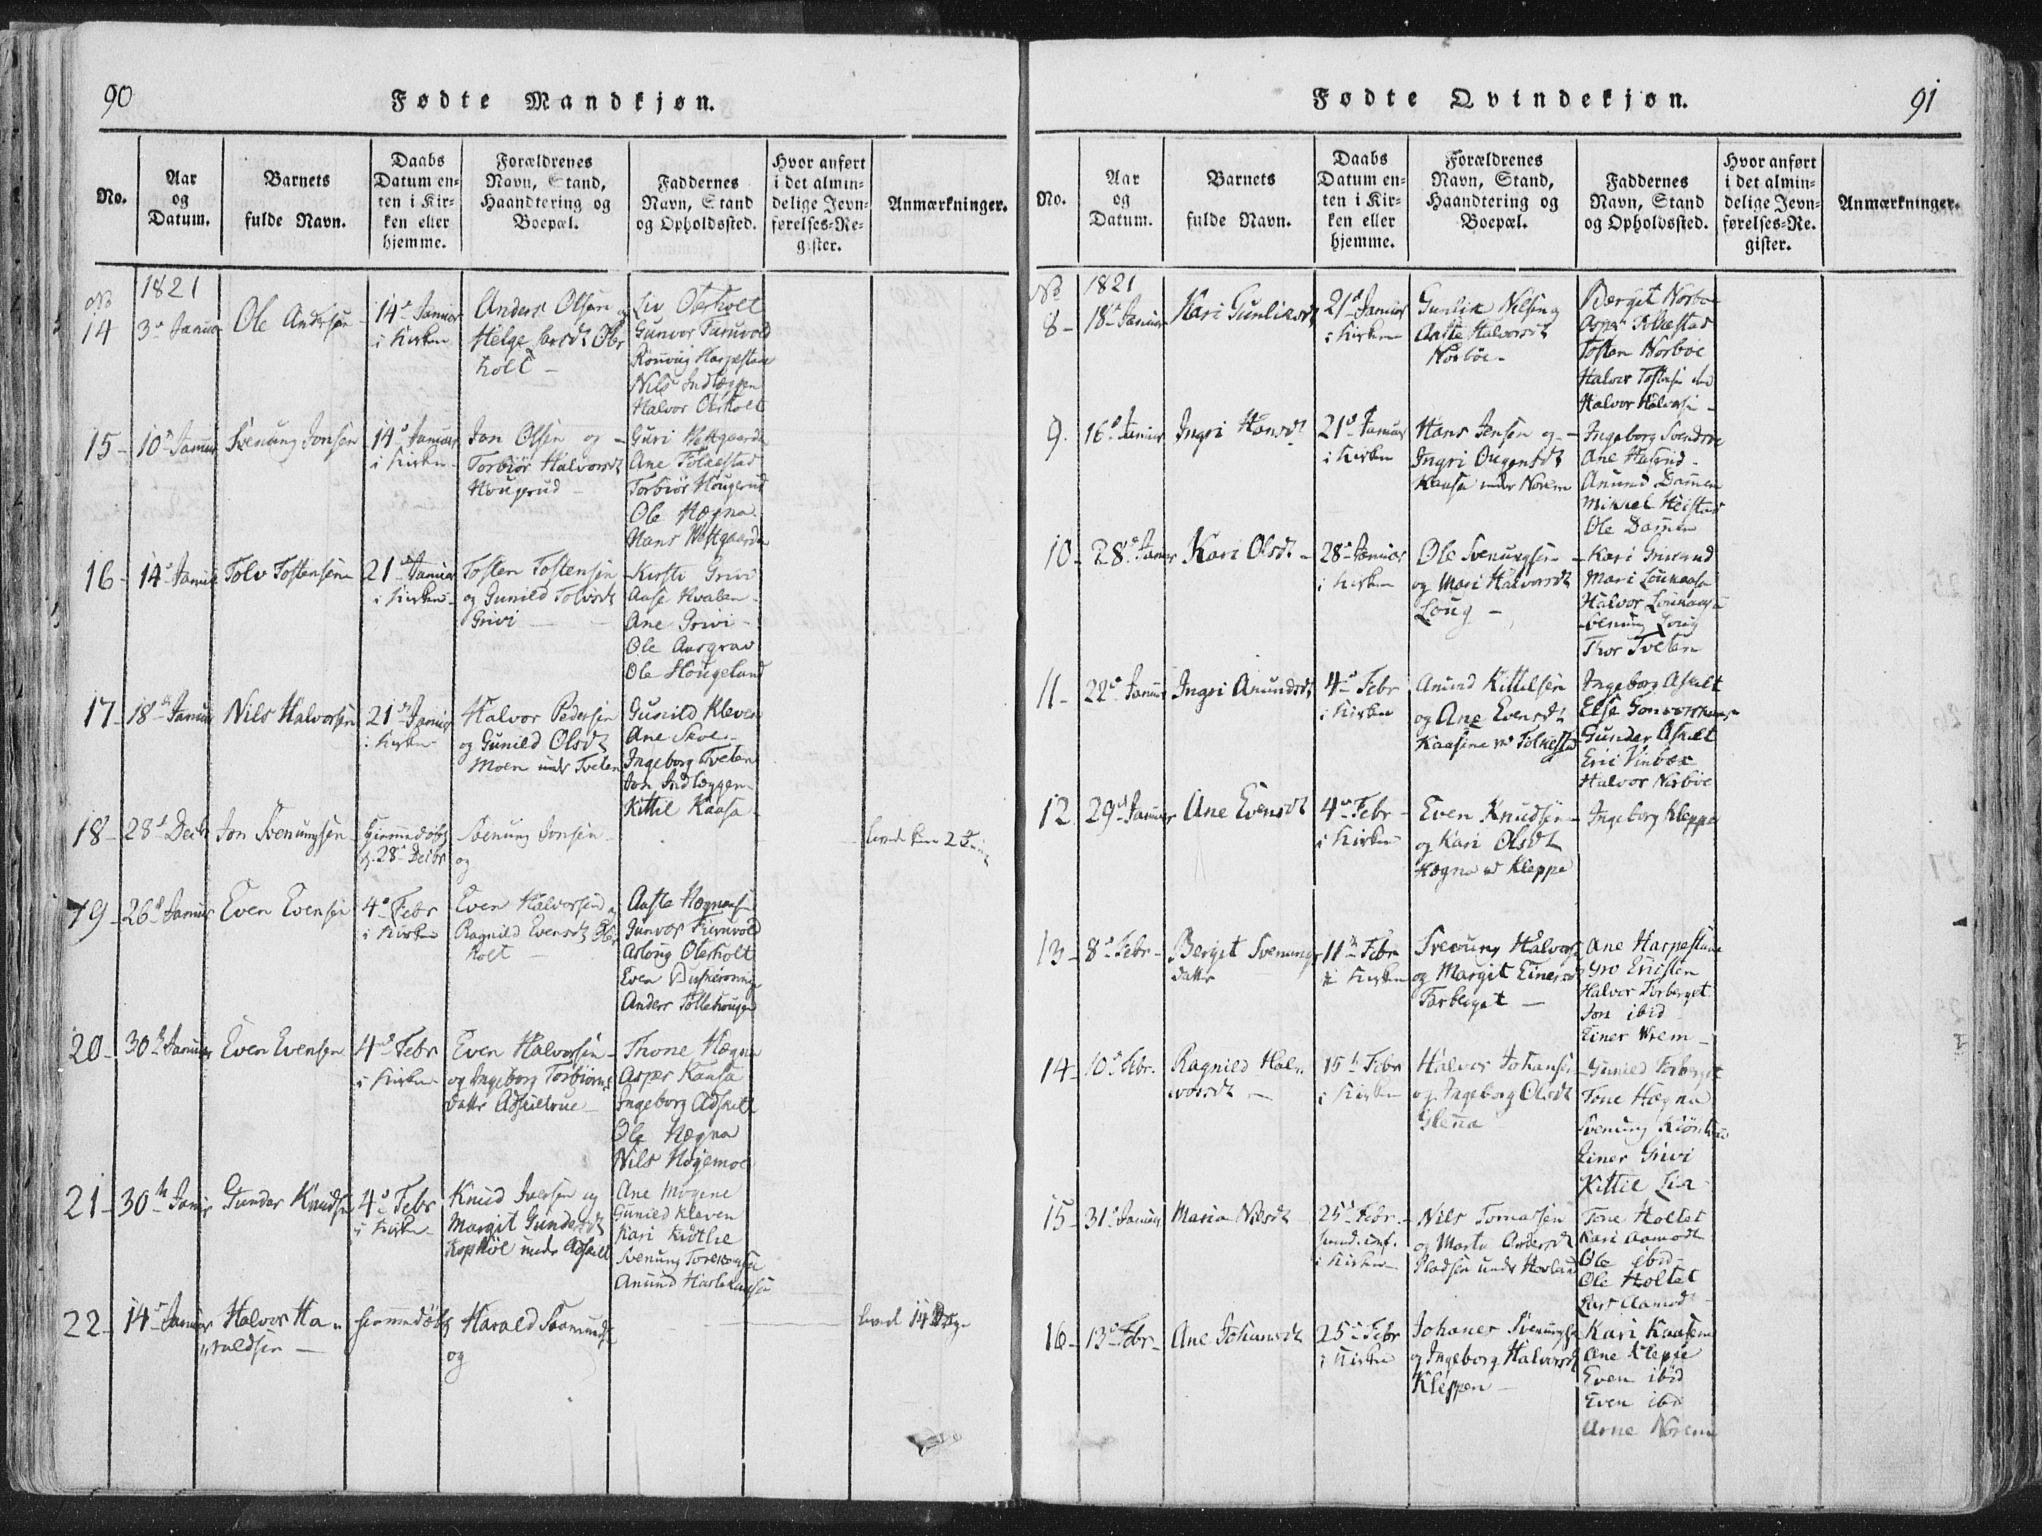 90
Fødte Mandkjøn.
No.
Aar
og
Datum.
Barnets
fulde Navn.
Daabs
Datum en-
ten i Kir-
ken eller
hjemme.
Forældrenes
Navn, Stand,
Haandtering og
Boepæl.
Faddernes
Navn, Stand
og Opholdssted.
Hvor anført
i det almin-
delige Jevn-
førelses-Re-
gister.
Anmærkninger.
No
1821
14
3d Januar
Ole Andersen
14d Januar
i Kirken
Anders Olsen
Helge
holt
Liv Oterholt
Gunvor Furuvold
Harpestan
Nils Indlæggen
Halvor Oterholt
15
10d Januar
Svenung Jonsen
14d Januar
i Kirken
Jon Olsen og
Torbiör Halvorsdt
Hougerud
Guri Westgaarden
Ane Folkestad
Torbiör Hougerud
Ole Hægna
Hans Westgaarden
16
14d Januar
Tolv Tostensen
21d Januar
i Kirken
Tosten Tostensen
og Gunild Tolvsdt
Grivi
Kirsti Grivi
Aase Kvalen
Ane Grivi
Ole Aasgrav
Ole Hougeland
17
18d Januar
Nils Halvorsen
21d Januar
i Kirken
Halvor Pedersen
og Gunild Olsdt
Moen under Tveten
Gunild Kleven
Ane Moe
Ingeborg Tveten
Jon Indlæggen
Kittil Kaasa
18
28d Decb
Jon Svenungsen
Hjemmedøbt
d. 28d Decbr
Svenung Jonsen
og
levede kun 2
19
26d Januar
Even Evensen
4d Febr
i Kirken
Even Halvorsen
Ragnild Evensdt Oter
holt
Aaste Hægna
Gunvor Furuvold
Asloug Oterholt
Even
Anders Tollehougen
20
30th Januar
Even Evensen
4d Febr
i Kirken
Even Halvorsen
og Ingeborg Torbiörns
datter Adskiltrue
Thone Hægna
Asper Kaasa
Ingeborg Adskilt
Ole Hægna
Nils Högemoe
21
30th Januar
Gunder Knudsen
4d Febr
i Kirken
Knud Iversen og
Margit Gundersdt
under Adskilt
Ane Mogene
Gunild Kleven
Kari
Svenung
Anund
22
14d Januar
Halvor Ha-
raldsen
hjemmedöbt
Harald Saamunds
og
levede 14 Dage
91
Fødte Qvindekjøn.
No.
Aar
og
Datum.
Barnets
fulde Navn.
Daabs
Datum en-
ten i Kir-
ken eller
hjemme.
Forældrenes
Navn, Stand,
Haandtering og
Boepæl.
Faddernes
Navn, Stand
og Opholdssted.
Hvor anført
i det almin-
delige Jevn-
førelses-Re-
gister.
Anmærkninger.
No
1821
8
18d Januar
Kari Gunliksdt
21d Januar
i Kirken
Gunlik Nilsen
Aaste Halvorsdt
Norböe
Bergit Norböe
Asper Folkestad
Tosten Norböe
Halvor Tostensen ibid
Halvor Halvorsen
9
16d Januar
Ingri Hansdt
21d Januar
i Kirken
Hans Jensen og
Ingri
Kaasa under Norem
Ingeborg
Ane Hasrud
Anund Damen
Mikkel Heistad
Ole Damen
10
28d Januar
Kari Olsdt
28d Januar
i Kirken
Ole Svenungsen
og Mari Halvorsdt
Loug
Kari
Mari Loukaasa
Halvor Loukaasa
Svenung Loug
Thor Tveten
11
22d Januar
Ingri Anundsdt
4d Febr
i Kirken
Anund Kittilsen
og Ane Evensdt
Kaasene v Folkestad
Ingeborg Askilt
Else
Gunder Askilt
Eric Vinbæk
Halvor Norböe
12
29d Januar
Ane Evensdt
4d Febr
i Kirken
Even Knudsen
og Kari Olsdt
Hægna v Kleppe
Ingeborg Kleppe
13
8d Febr
Bergit Svenungs
datter
11th Febr
i Kirken
Svenung Halvors
og Margit Einersdt
Torberget
Ane Harpestan
Gro Ericsten
Halvor Torberget
Jon ibid
Einer Wrem
14
10d Febr.
Ragnild Hal-
vorsdt
15th Febr
i Kirken
Halvor Johansen
og Ingeborg Olsdt
Glenna
Gunild Torberget
Tone Hægna
Svenung
Einer Grivi
Kittil Lia
15
31d Januar
Maria Nilsdt
25d Febr
i Kirken
Nils Tomassen
og Marta Andersdt
Pladsen under
Tone Holtet
Kari Aamodt
Ole ibid
Ole Holtet
Lars Aamodt
16
13d Febr
Ane Johansdt
25d Febr
i Kirken
Johanes Svenungsen
og Ingeborg Halvorsdt
Kleppen
Kari Kaasene
Ane Kleppe
Even ibid
Even ibid
Arne Norem